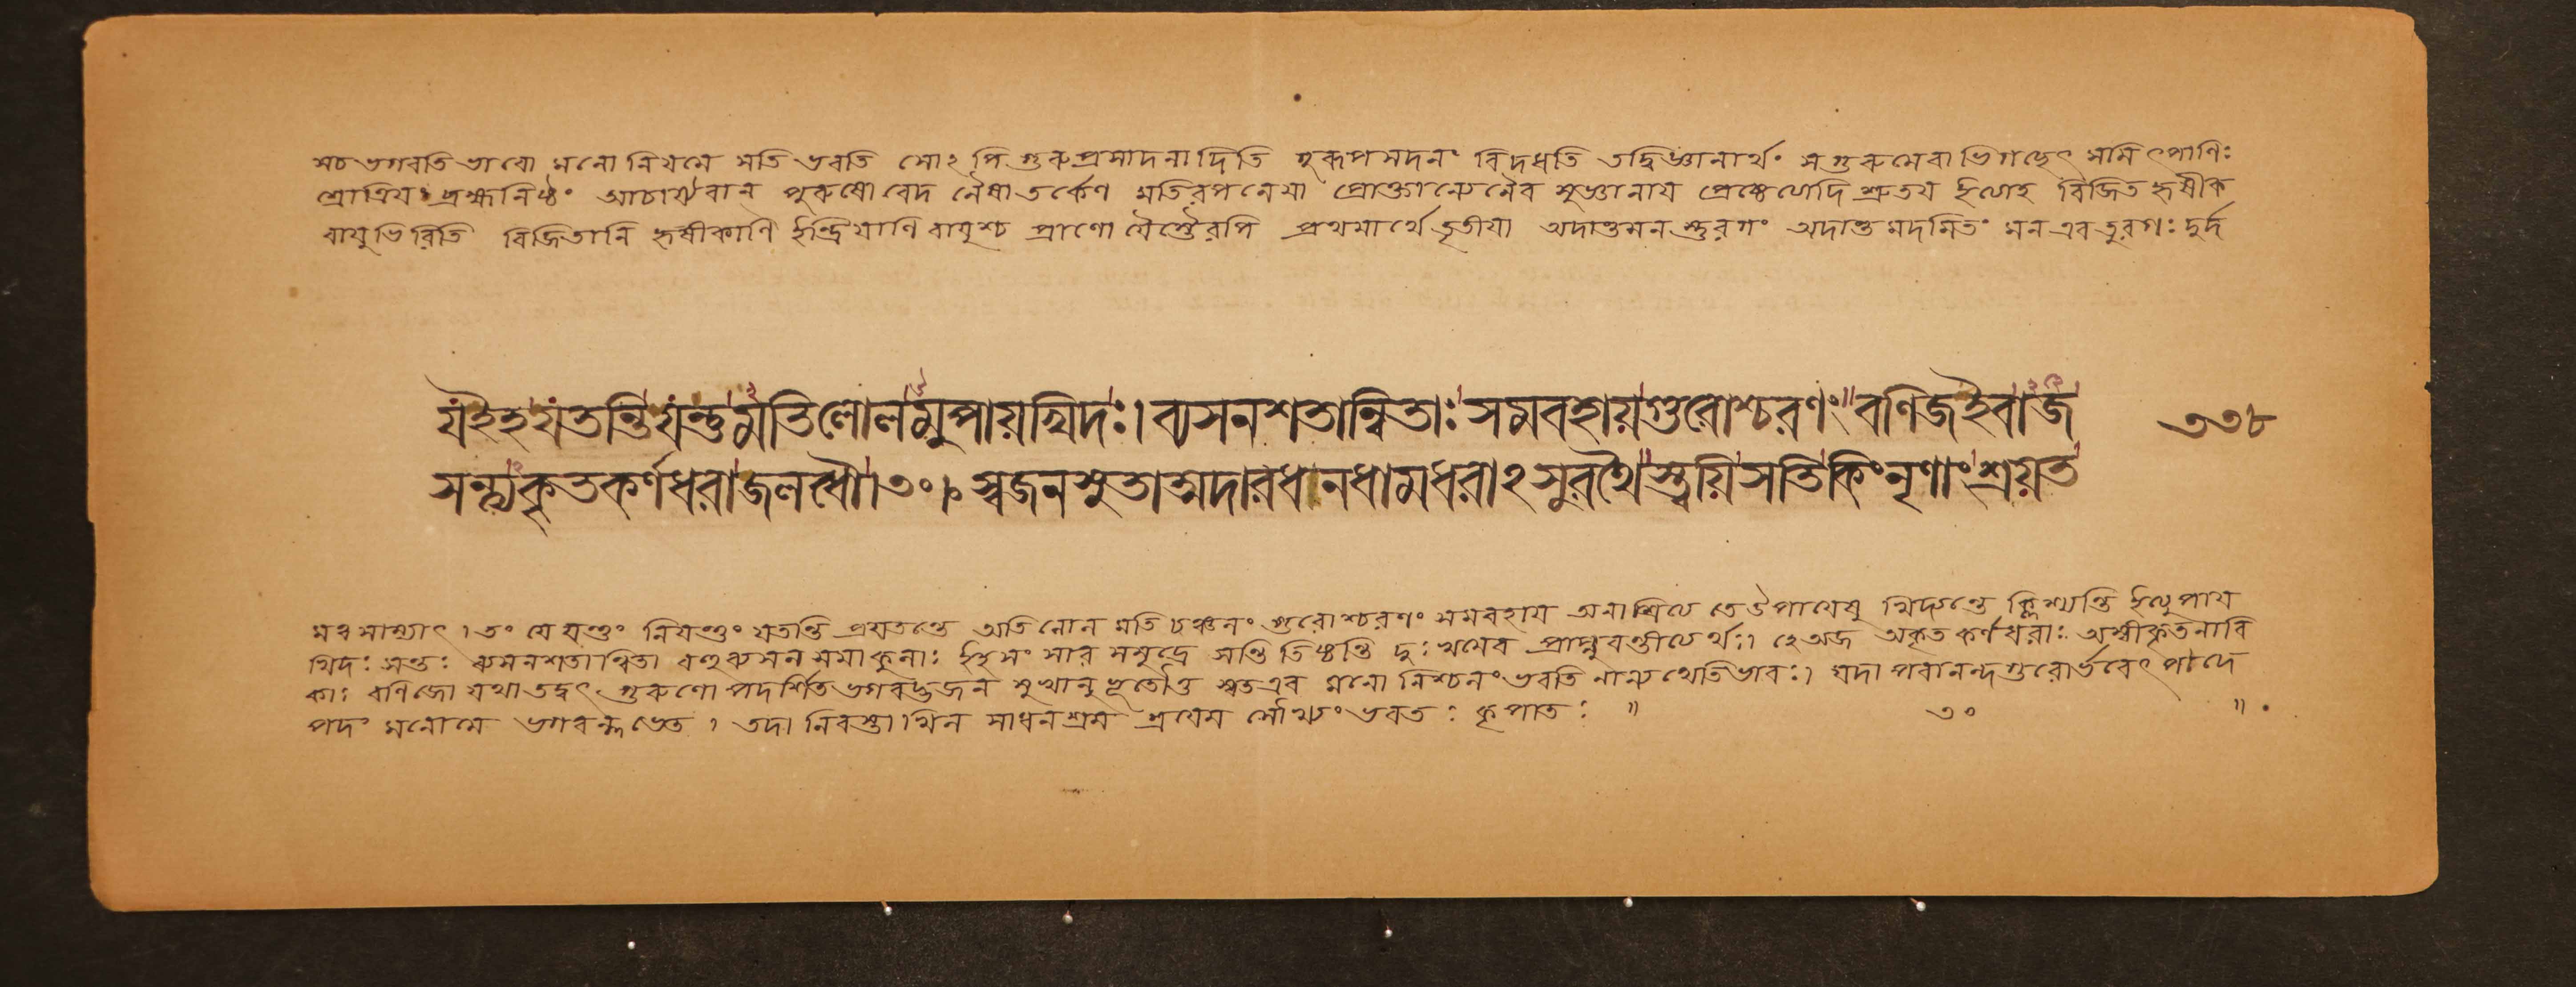 সচ ভগবতি ভাবো মনো নিযমে সতি ভবতি সোঽপি গুরুপ্রসাদনাদিতি গুরূপসদনং বিদধতি তদ্বিজ্ঞানার্থং স গুরুমেবাভিগচ্ছেৎ সমিৎপাণিঃ
শ্রোত্রিযং ব্রহ্মনিষ্ঠং আচার্য্যবান পুরুষো বেদ নৈষা তর্কেণ মতিরপনেযা প্রোক্তান্যেনৈব সুজ্ঞানায প্রেষ্ঠেত্যাদি শ্রুতয ইত্যাহ বিজিত হৃষীক
বাযুভিরিতি বিজিতানি হৃষীকাণি ইন্দ্রিযাণি বাযুশ্চ প্রাণো যৈস্তৈরপি প্রথমার্থে তৃতীযা অদান্তমনস্তুরগং অদান্ত মদমিতং মন এব তুরগঃ দুর্দ
যইহযতন্তিযন্তুমতিলোলমুপাযখিদঃ। ব্যসনশতান্বিতাঃ সমবহায়গুরোশ্চরণং বণিজইবাজ ৩৩৮
সন্ত্যকৃতকর্ণধরাজলধৌ।৩০।। স্বজনসুতাত্মদারধনধামধরাঽসুরথৈস্ত্বয়িসতিকিংনৃণাংশ্রয়ত
মত্বসাম্যাৎ। তং যে যন্তুং নিযন্তুং যতন্তি প্রযতন্তে অতিলোল মতি চঞ্চলং গুরোশ্চরণং সমবহায অনাশ্রিত্য তে উপাযেষু খিদ্যন্তে ক্লিশ্যন্তি ইত্যুপায
খিদঃ সন্তঃ ব্যসনশতান্বিতা বহুব্যসন সমাকুলাঃ ইহ সংসার সমুদ্রে সন্তি তিষ্ঠন্তি দুঃখমেব প্রাপ্নুবন্তীত্যর্থঃ। হে অজ অকৃত কর্ণধরাঃ অস্বীকৃতনাবি
কাঃ বণিজো যথা তদ্বৎ গুরুণোপদর্শিত ভগবদ্ভজন সুখানুভূতৌ তু স্বত এব মনো নিশ্চলং ভবতি নান্যথেতিভাবঃ। যদা পরানন্দগুরোর্ভবেৎ পাদে
পদং মনোমে ভগবন্ লভেত । তদা নিরস্তাখিল সাধনশ্রম শ্রযেয সৌখ্যং ভবতঃ কৃপাতঃ ॥ ৩০ ॥